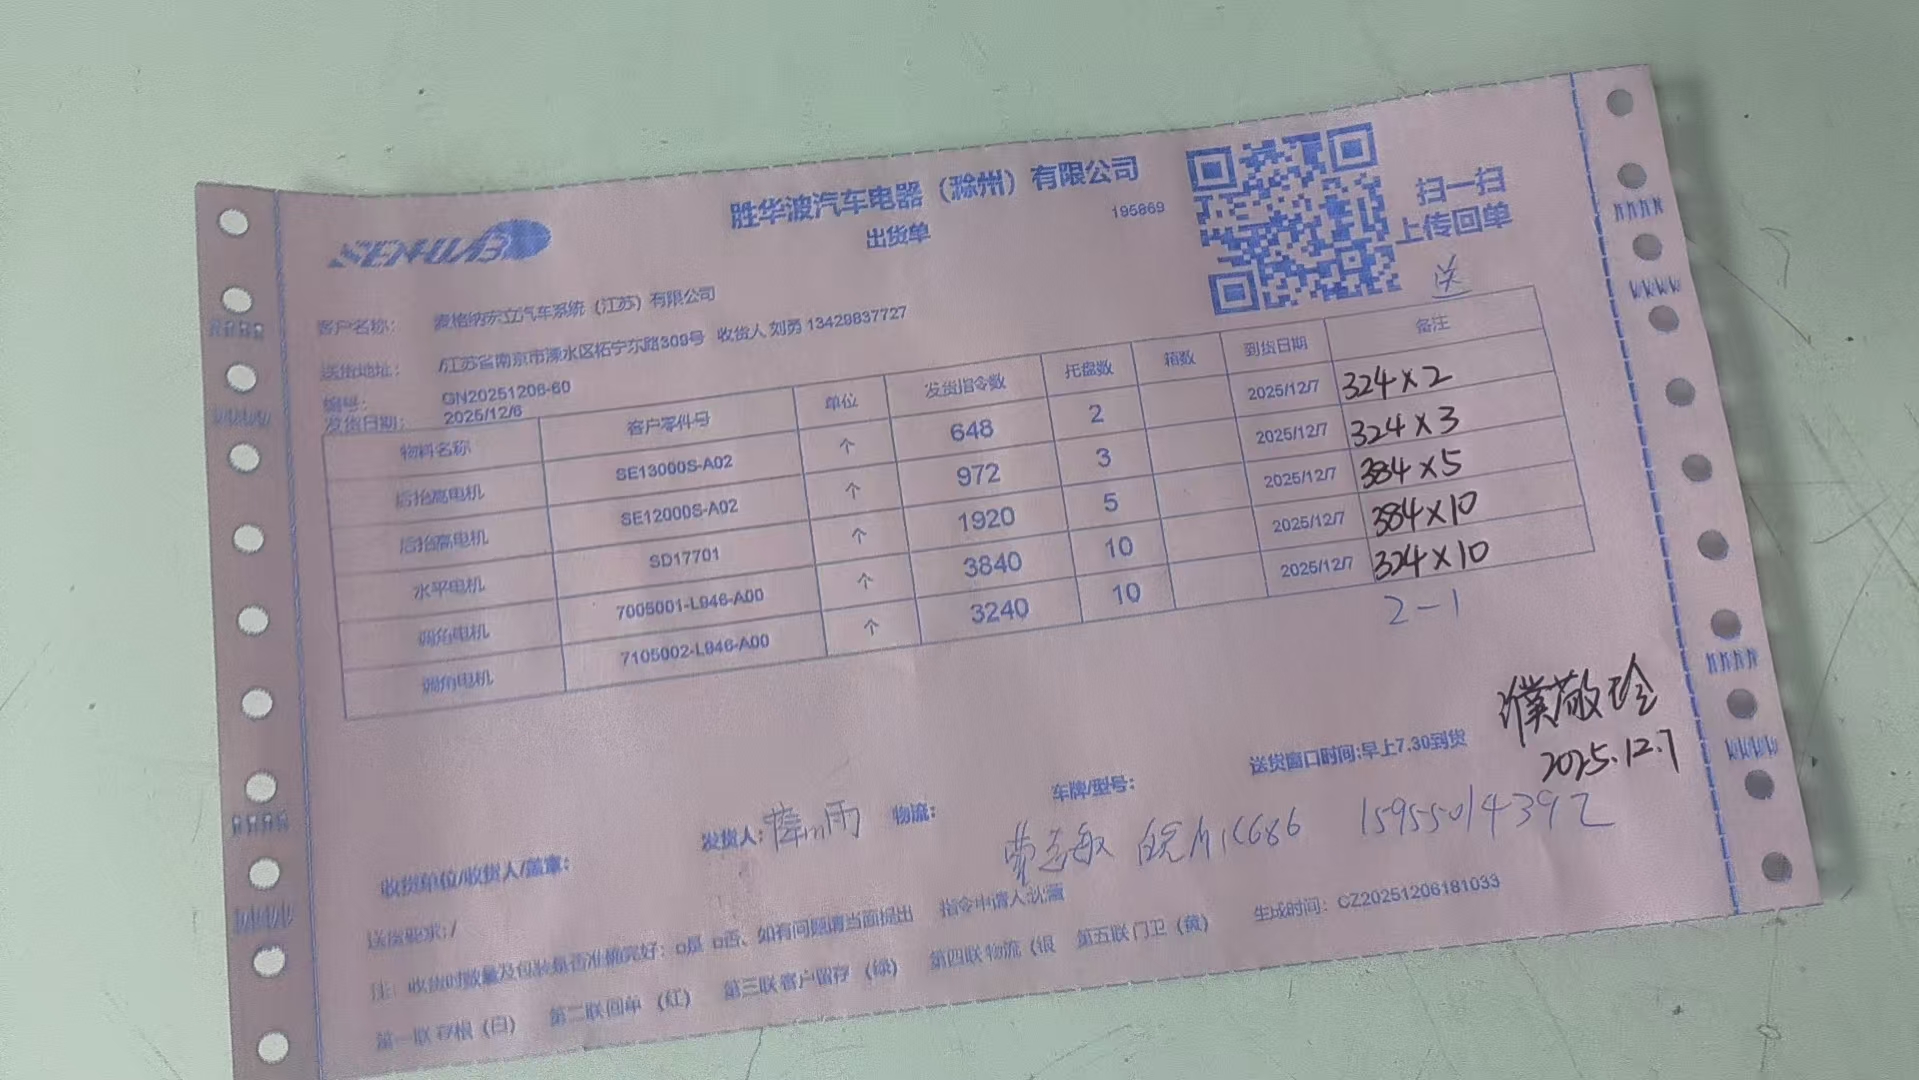 SENHUAB
胜华波汽车电器（滁州）有限公司
出货单
195869
扫一扫
上传回单
送
客户名称： 麦格纳宏立汽车系统（江苏）有限公司
送货地址： /江苏省南京市溧水区柘宁东路309号 收货人 刘勇 13429837727
编号： GN20251206-60
发货日期： 2025/12/6
物料名称 客户零件号 单位 发货指令数 托盘数 箱数 到货日期 备注
后抬高电机 SE13000S-A02 个 648 2 2025/12/7 324×2
后抬高电机 SE12000S-A02 个 972 3 2025/12/7 324×3
水平电机 SD17701 个 1920 5 2025/12/7 384×5
调角电机 7005001-L946-A00 个 3840 10 2025/12/7 384×10
调角电机 7105002-L946-A00 个 3240 10 2025/12/7 324×10
2-1
濮敬玲
2025.12.7
送货窗口时间:早上7.30到货
收货单位/收货人/盖章： 发货人: 物流： 车牌/型号：
15955014392
送货要求:/ 指令申请人:沈 生成时间： CZ20251206181033
注：收货时数量及包装是否准确完好：□是 □否、如有问题请当面提出
第一联 存根（白） 第二联 回单 （红） 第三联 客户留存 （绿） 第四联 物流（银 第五联 门卫（黄）